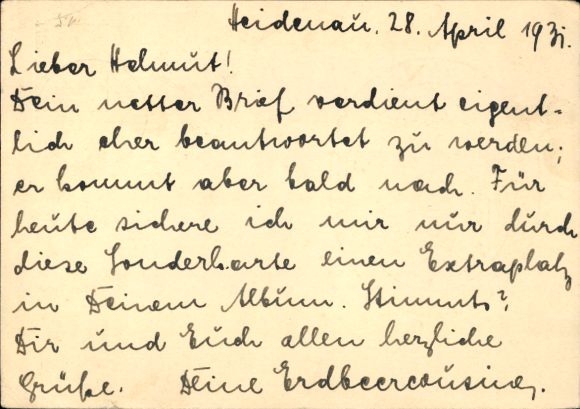 Heidenau. 28. April 193.
Lieber Helmut!
Dein netter Brief verdient eigent=
lich eher beantwortet zu werden;
er kommt aber bald nach. Für
heute sichere ich mir nur durch
diese Sonderkarte einen Extraplatz
in Deinem Album. Stimmts?
Dir und Euch allen herzliche
Grüße. Deine Erdbeercousine.